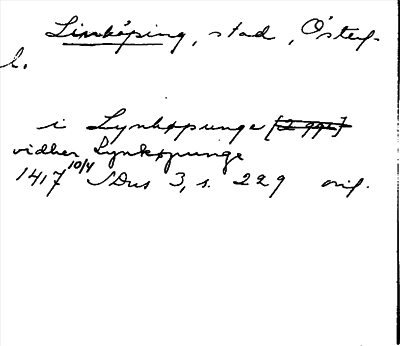 Linköping, stad, Österg-
l.
i Lynkøpunge [2 ggr]
vidher Lynkøpunge
1417 10/4 SDns 3, s. 229 orig.